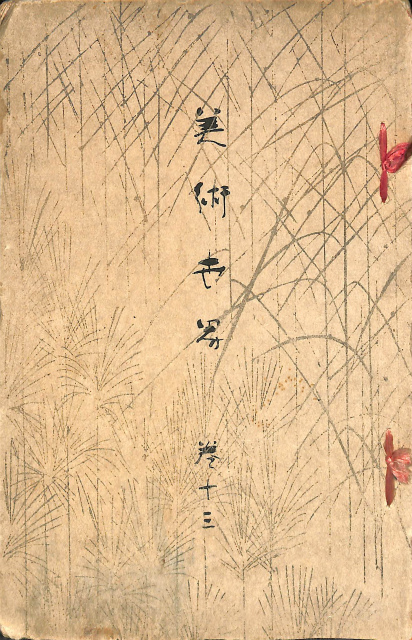 美術世界 卷十三